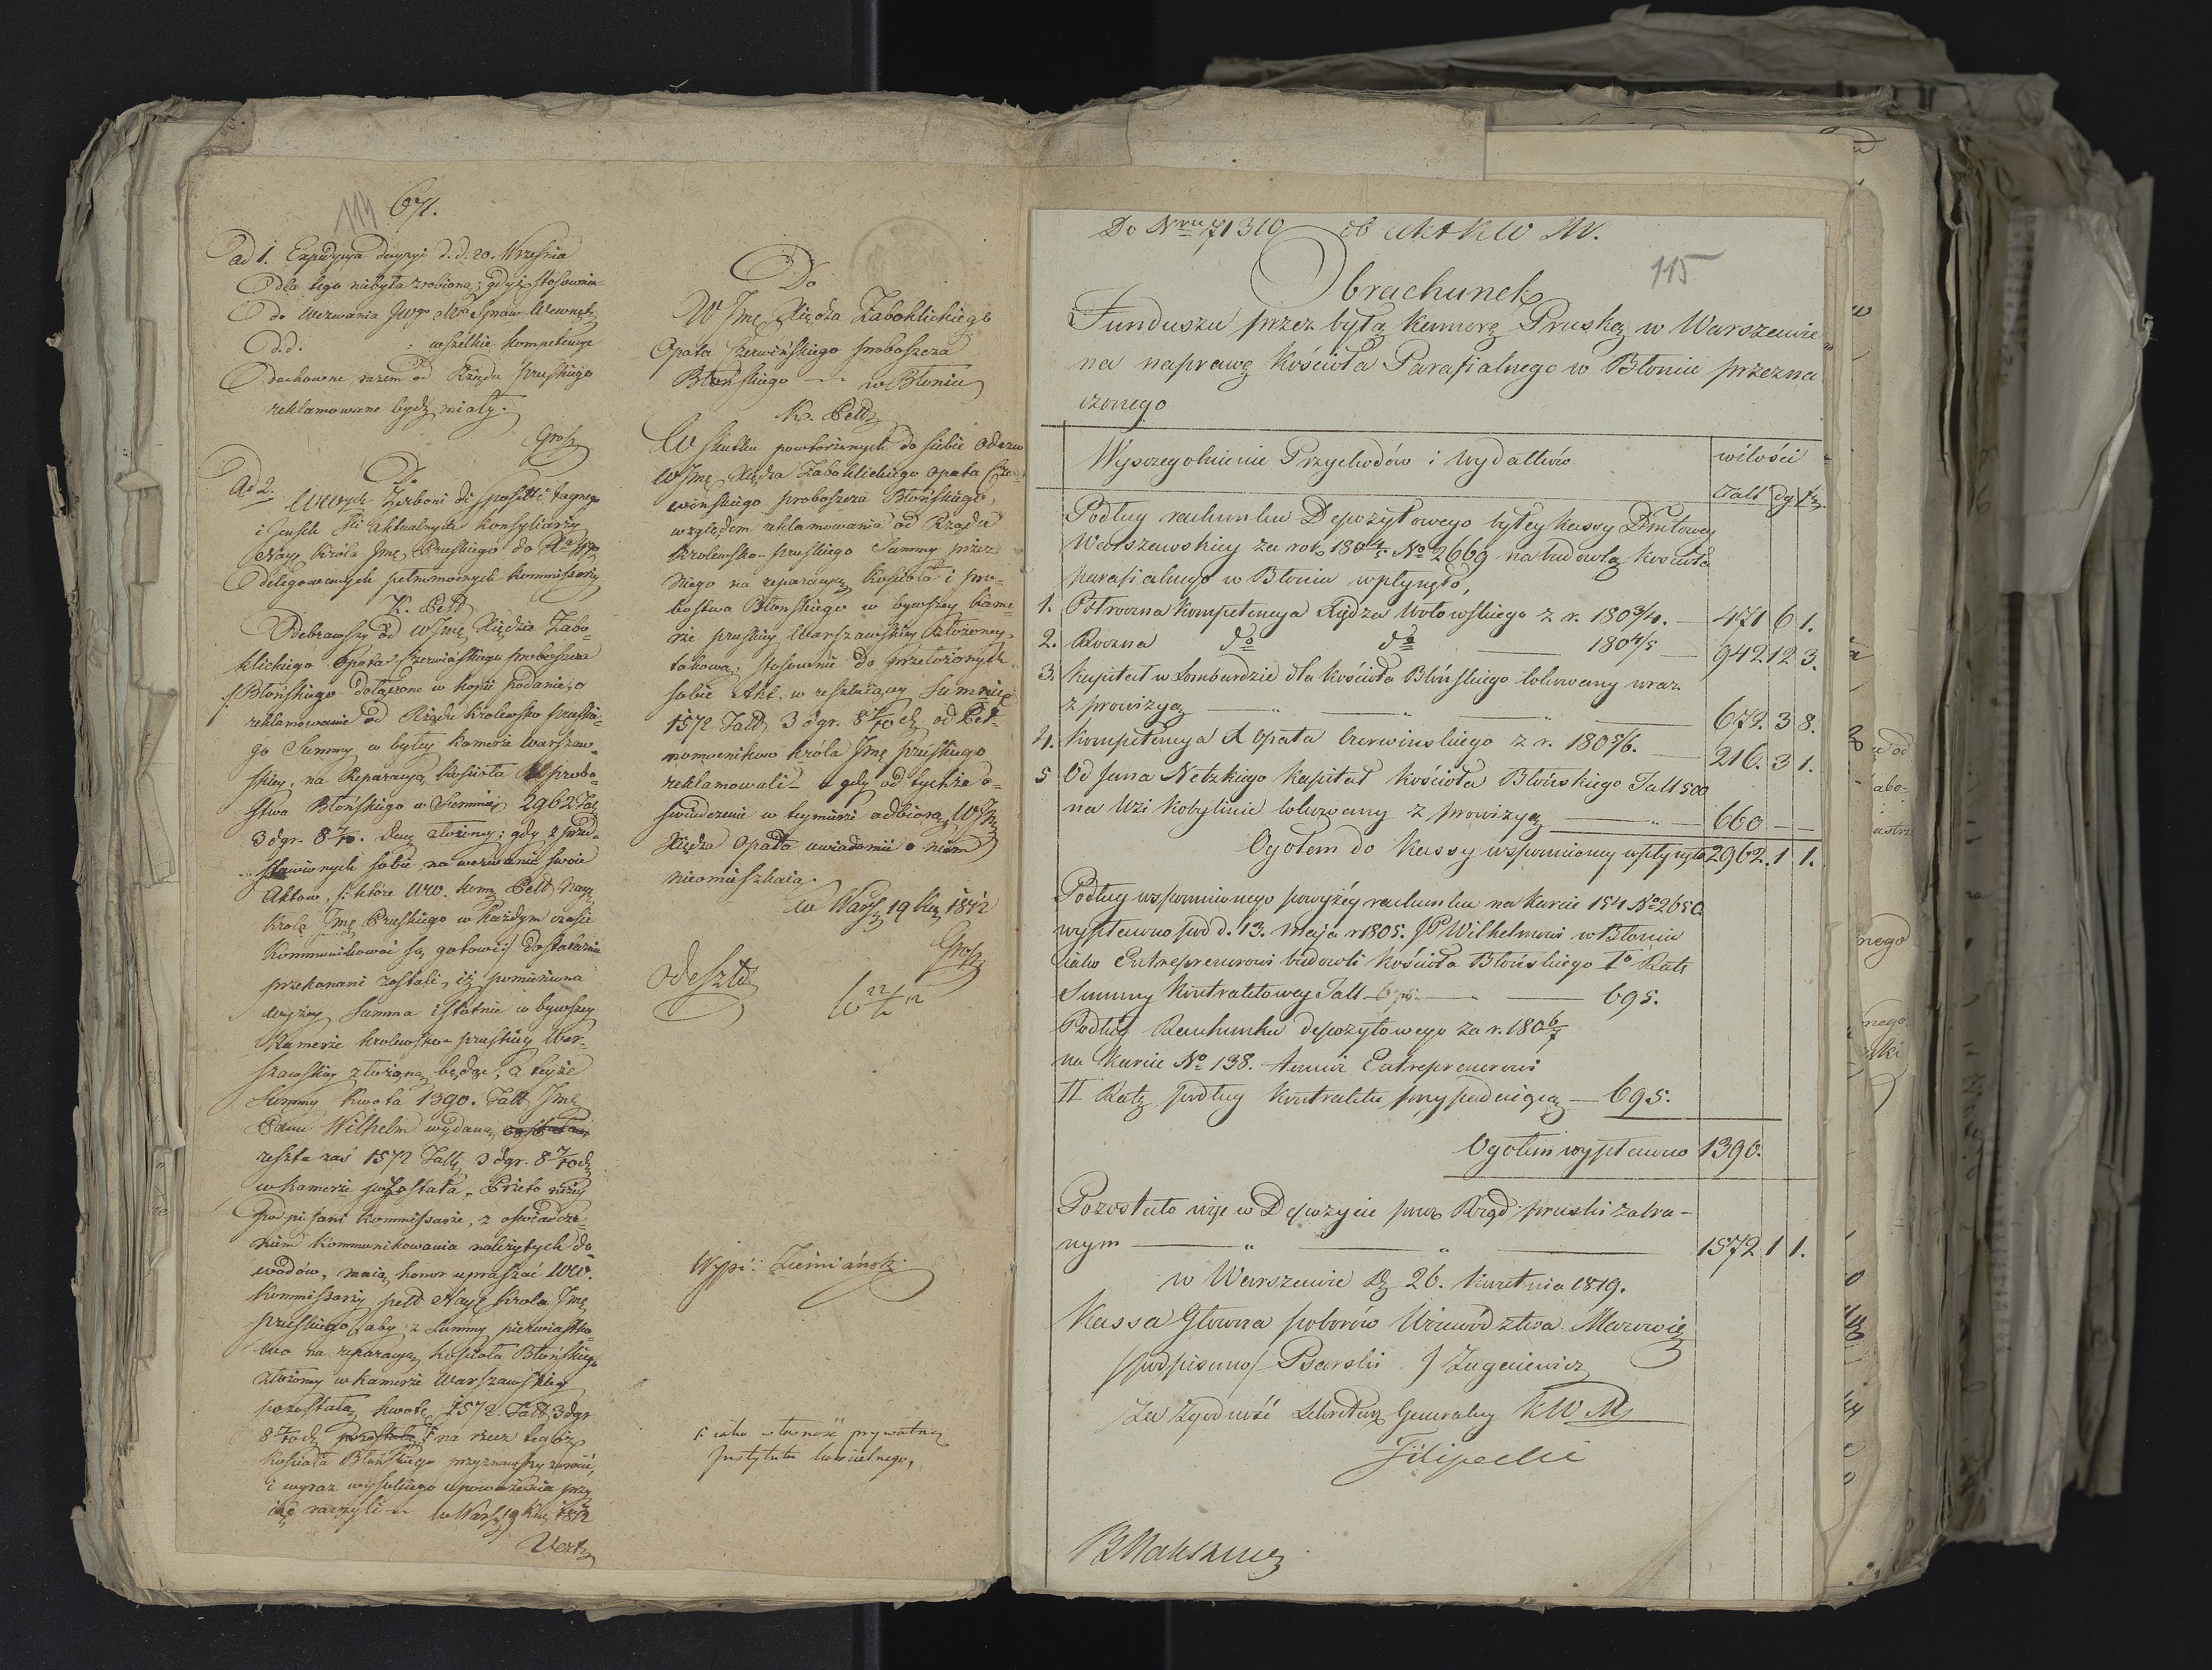 671.
114
ad 1. Expedycya dnia d. d. 20. Września
dla tego niebyła zrobiona; gdyż stosownie
do wezwania Spraw Wewnętz
d. d. : wszelkie kompetencye
duchowne razem od Rządu pruskiego
reklamowane bydź miały.
Grosz
Ad 2.
Do
WWch Zerboni di sposetti taynego
i aktualnych konsyliarzy
Nayj. Króla Jmę Pruskiego do
Delegowanych pełnomocnych kommissarzy
K. Petd
Odebrawszy od WJmę Xiędza Zabo-
klickiego Opata Czerwińskiego proboszcza
Błońskiego dołączone w kopii podanie, o
reklamowanie od Rządu Krolewsko prusko-
go Summy w byłey kamerze Warszaw-
skiey, na Reparacyą kościoła i probo-
stwa Błońskiego w Summie 2962 Tal
3 dgr. 8 7/10. złożoney; gdy z przed-
stawionych sobie na wezwanie swoie
Aktow, /: które WW. kom. Petd Nayj
Krola Jmę Pruskiego w każdym czasie
kommunikować są gotowi:/ dostatecznie
przekonani zostali, iż pomieniona
wyżey Summa istotnie w bywszey
Kamerze krolewsko-pruskiey War-
szawskiey złożoną będąc, a teyże
Summy kwota 1390. Tall Jmę
Panu Wilhelm wydaną
reszta zaś 1572 Tall 3 dgr. 8 7/10 d
w kamerze pozostała. Przeto niżey
podpisani kommissarze, z oświadcze-
niem kommunikowania należytych do-
wodów, maią honor upraszać WW.
kommissarzy petd Nayj krola Jmę
pruskiego, aby z Summy pierwiastko-
wo na reparacyą kościoła Błońskiego
złożoney w kamerze Warszawskiey
pozostałą kwotę 1572. Tall 3 dgr
8 7/10 d pozostałą /: na rzecz tegoż
kościoła Błońskiego przyznawszy zwrócić,
i wyraz wysokiego upoważenia przy
iąć raczyli — w Warsz 19 kw 1812
Vertz
Do
WJmę Xiędza Zaboklickiego
Opata Czerwińskiego proboszcza
Błońskiego — w Błoniu
K. Petd
W skutku powtorzonych do siebie Odezw
WJmę Xiędza Zaboklickiego opata Czer-
wińskiego proboszcza Błońskiego,
względem reklamowania od Rządu
krolewsko-pruskiego Summy przez
niego na reparacyą kościoła i pro-
bostwa Błońskiego w bywszey kame-
rze pruskiey Warszawskiey złożoney,
takową, stosownie do przełożonych
sobie Akt, w resztuiącey Summie
1572 Tall 3 dgr. 8 7/10 d od Peł-
nomocnikow krola Jmę pruskiego
reklamowali — a gdy od tychże o-
świadczenie w teymierze odbiorą, WJmę
Xiędza Opata uwiadomić o niem
nieomieszkaią.
w Warsz 19 kw 1812
Grosz
odeszło
22/4 12
Wypi: Ziemiańsk:
/: iako własność prywatney
Instytutu kościelnego,
Do Nru 71310 ob akt KW M.
115
Obrachunek
Funduszu przez byłą kamerę Pruską w Warszawie
na naprawę Kościoła Parafialnego w Błoniu przezna
czonego
Wyszczegolnienie Przychodów i wydatków | wilości
Tall | dgr | f
Podług rachunku Depozytowego byłey kassy Dmtowey
Warszawskiey za rok 1804/5 No 2669 na budowlą kościoła
parafialnego w Błoniu wpłynęło,
1. Połroczna kompetencya Xiędza Wołowskiego z r. 1803/4. — 471 6 1.
2. Roczna do do — 1804/5 — 942 12 3.
3. Kapitał w Lombardzie dla kościoła Błońskiego lokowany wraz
z prowizyą — „ — „ — 672 3 8.
4. Kompetencya X Opata Czerwinskiego z r. 1805/6. — 216. 3 1.
5 Od Jana Netzkiego kapitał kościoła Błońskiego Tall 500
na Wsi Kobylinie lokowany z prowizyą — „ — 660 —
Ogołem do kassy wspomnioney wpłynęło 2962. 1 1.
Podług wspomnionego powyżéy rachunku na karcie 154 No 2650
wypłacono pod d. 13. Maja r 1805. JP Wilhelmowi w Błoniu
iako Entreprenerowi budowli kościoła Błońskiego Io Ratę
Summy kontraktowey Tall — „ — 695.
Podług Rachunku depozytowego za r. 1806/7
na karcie No 138. temuż Entreprenerowi
II Ratę podług kontraktu przypadaiącą — 695.
Ogołem wypłacono 1390.
Pozostało więc w Depozycie przez Rząd pruski zabra-
nym — „ — „ — 1572 1 1.
w Warszawie D 26. kwietnia 1819.
Kassa Głowna poborów Woiewództwa Mazowie
/podpisano/ Psarski /
Za Zgodność Sekretarz Generalny KWM
Filipecki